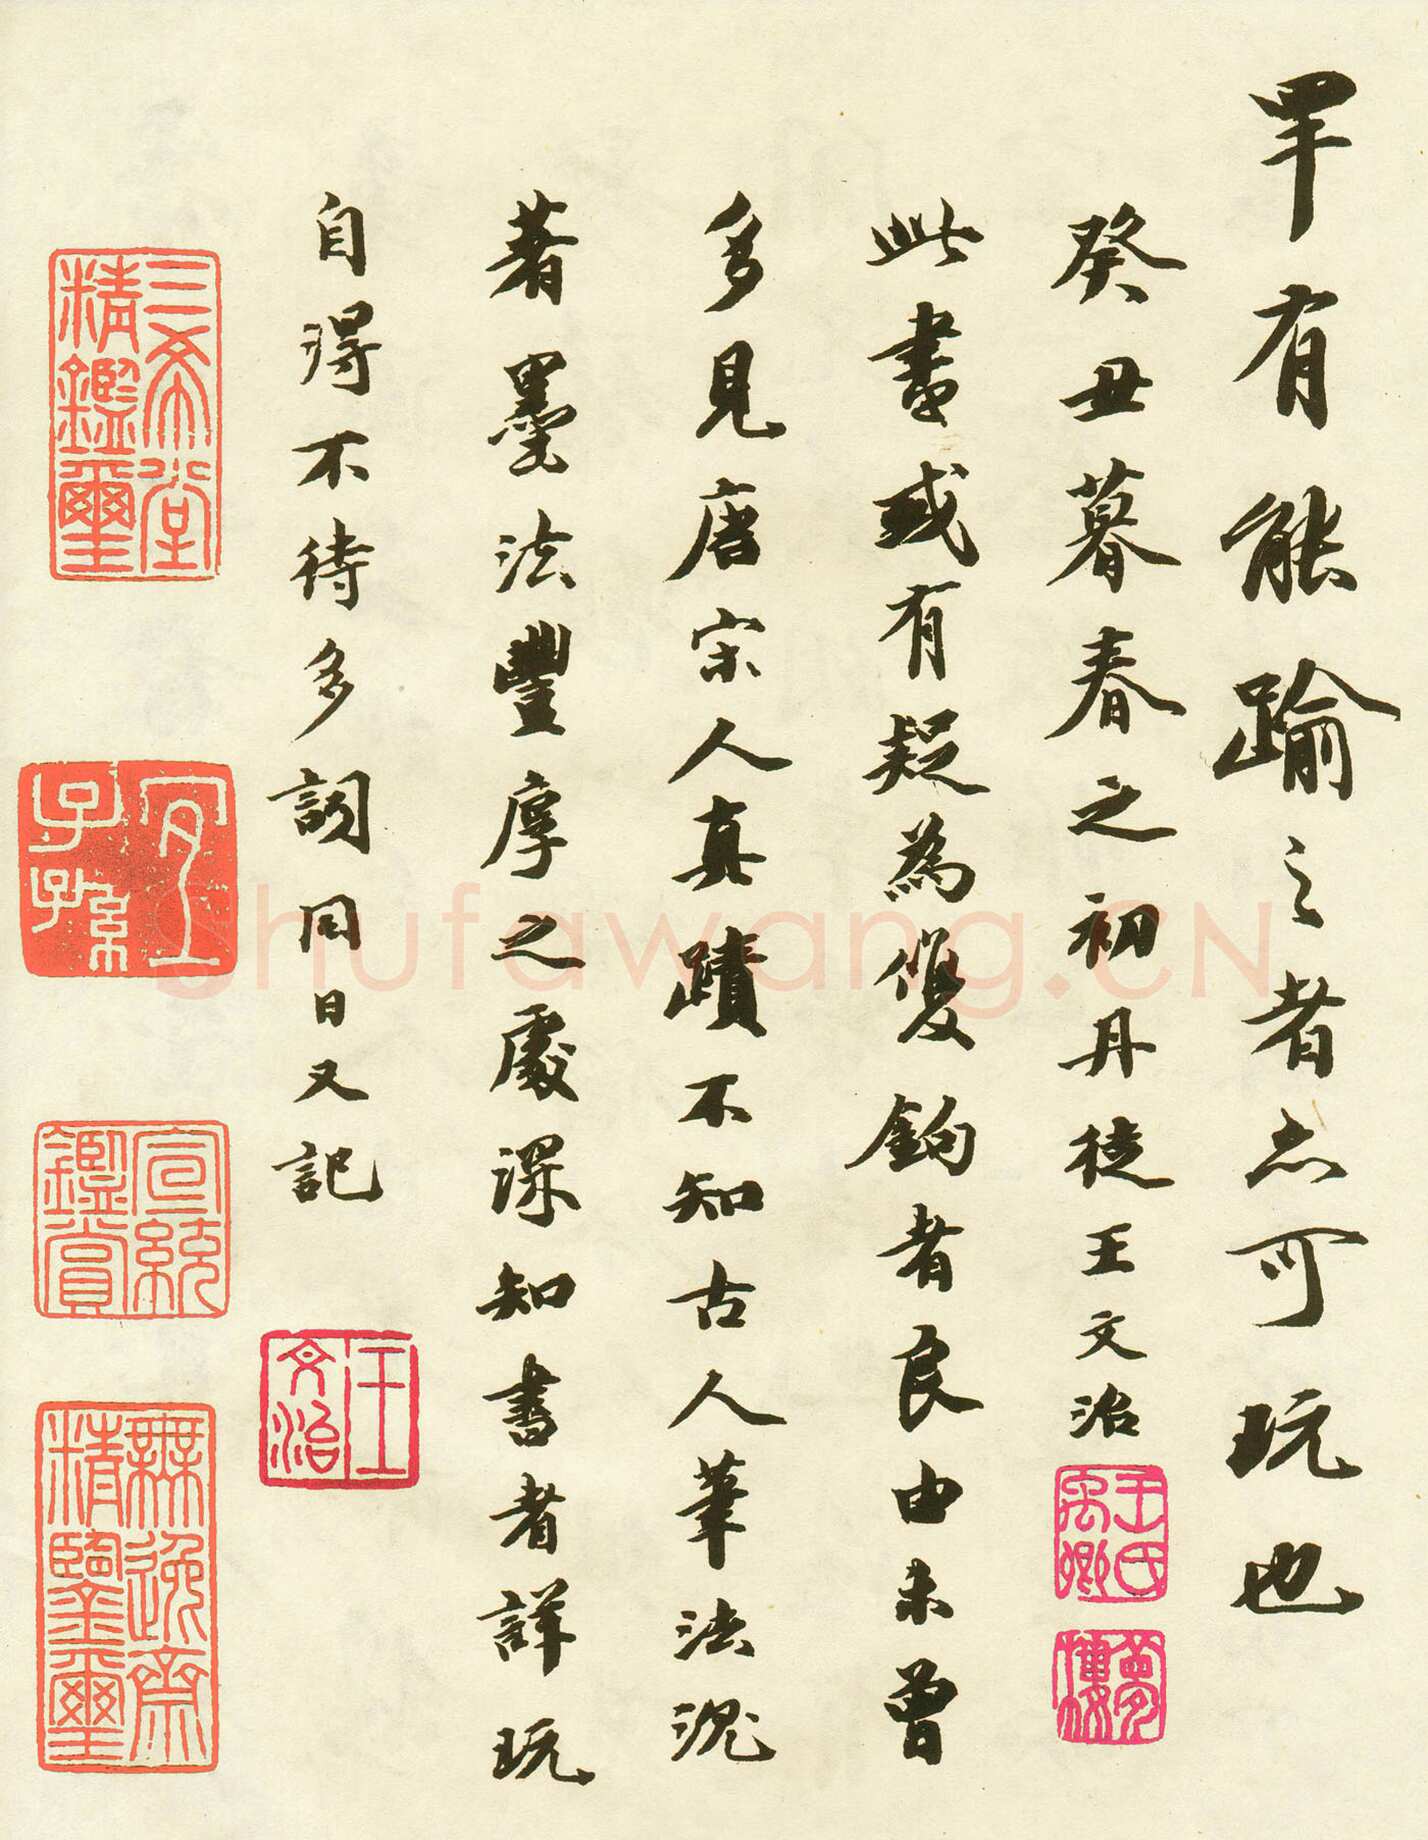 罕有能踰之者亦可玩也
癸丑暮春之初丹徒王文治
此書或有疑為雙鉤者良由未曾
多見唐宋人真蹟不知古人筆法沉
著墨法豐厚之處深知書者詳玩
自得不待多詞同日又記
王氏禹卿
夢樓
王文治
三希堂精鑑璽
宜子孫
宣統鑑賞
無逸齋精鑒璽
shufawang.CN